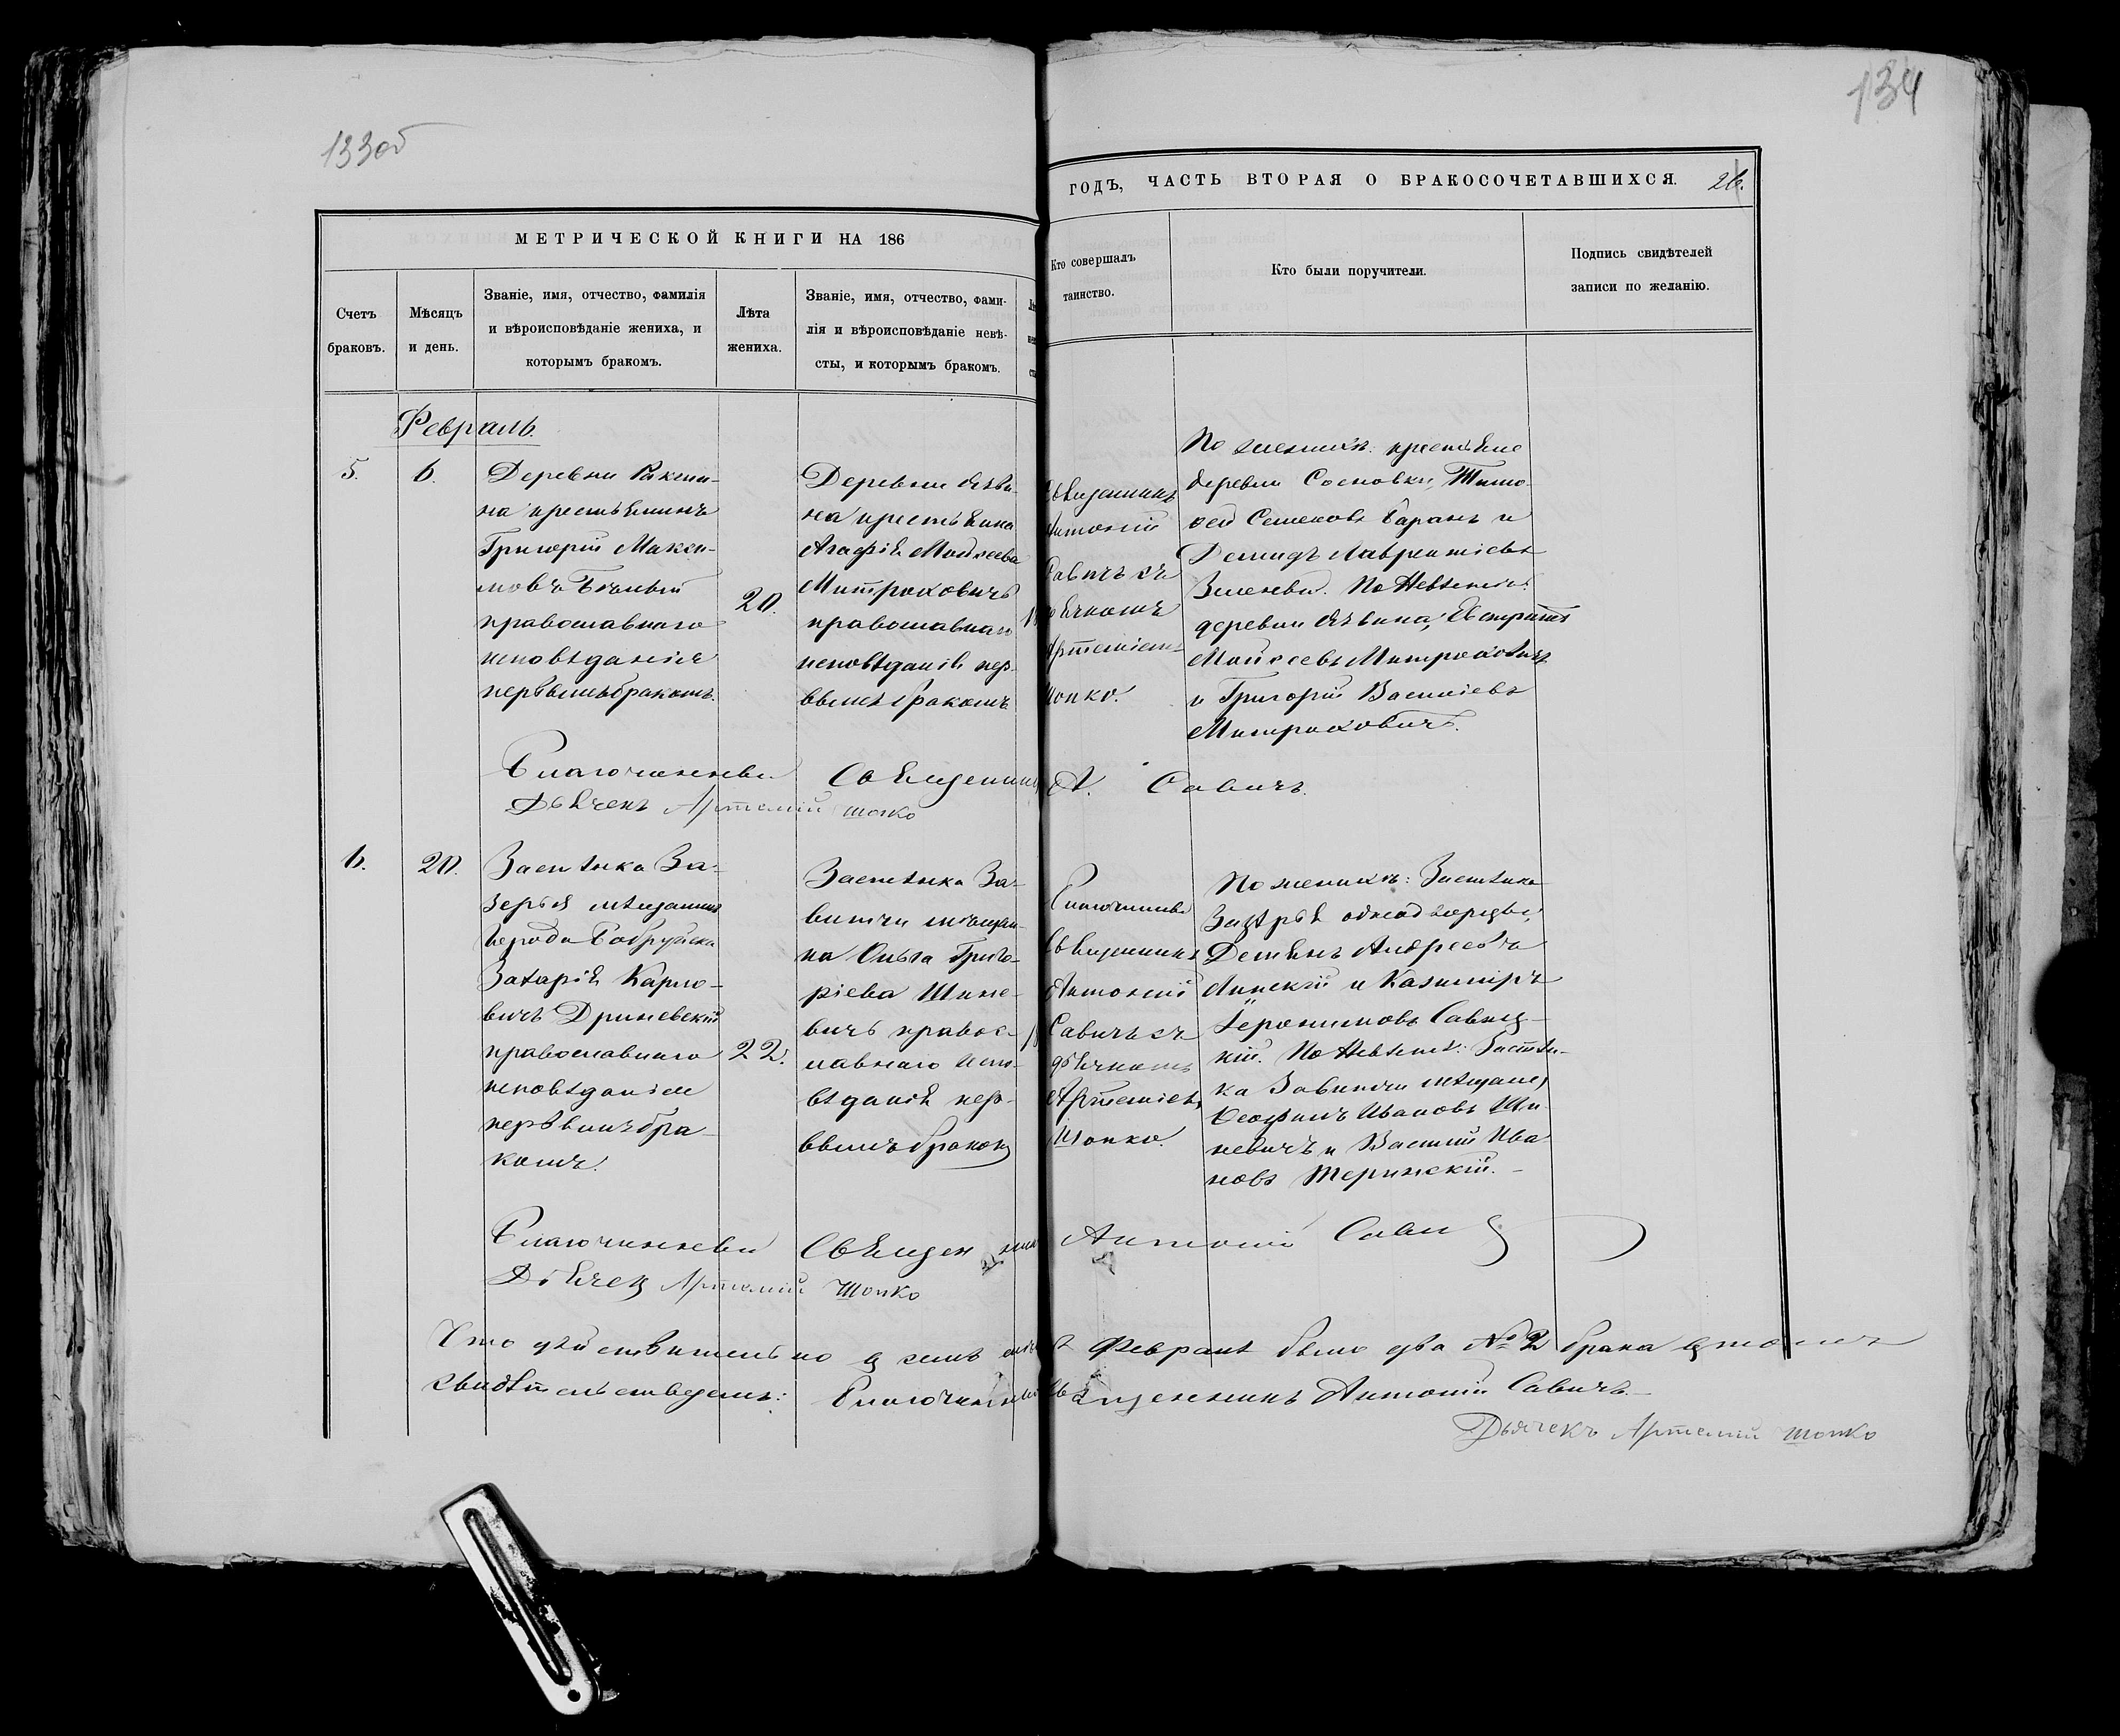 133об
134
МЕТРИЧЕСКОЙ КНИГИ НА 186
ГОДЪ, ЧАСТЬ ВТОРАЯ О БРАКОСОЧЕТАВШИХСЯ. 26.
Счетъ
браковъ.
Мѣсяцъ
и день.
Званіе, имя, отчество, фамилія
и вѣроисповѣданіе жениха, и
которымъ бракомъ.
Лѣта
жениха.
Званіе, имя, отчество, фами-
лія и вѣроисповѣданіе невѣ-
сты, и которымъ бракомъ.
Кто совершалъ
таинство.
Кто были поручители.
Подпись свидѣтелей
записи по желанію.
Февраль.
5.
6.
Деревни
на крестьянинъ
Григорій Макси-
мовъ
православнаго
исповѣданія
первымъ бракомъ.
20.
Деревни
на крестьянка
Агафія Мойсеева
Митраховичъ
православнаго
исповѣданія пер-
вымъ бракомъ
Священникъ
Антоній
Савичъ съ
дьячкомъ
Артеміемъ
Шопко.
По женихѣ: крестьяне
деревни Сосновки, Тимо-
фей Семеновъ Баранъ и
Демидъ Лаврентіевъ
По Невѣстѣ:
деревни
Мойсеевъ Митраховичъ
и Григорій Васильевъ
Митраховичъ.
Благочинный Священникъ А. Савичъ.
Дьячекъ Артемій Шопко
6.
20.
Застѣнка За-
зерья мѣщанинъ
Города Бобруйска
Захарія Карло-
вичъ Дриневскій
православнаго
исповѣданія
первымъ бра-
комъ.
22.
Застѣнка За-
витчи мѣщан-
ка Ольга Григо-
ріева Шине-
вичъ правос-
лавнаго испо-
вѣданія пер-
вымъ бракомъ
Благочинный
Священникъ
Антоній
Савичъ съ
дьячкомъ
Артеміемъ
Шопко.
По женихѣ: Застѣнка
Зазѣрья однодворцы,
Демьянъ Андреевъ
Липскій и Казимиръ
Іеронимовъ Савиц-
кій. По Невѣстѣ: Застѣн-
ка Завитчи мѣщане,
Ивановъ Ши-
невичъ и Василій Ива-
новъ Теринскій.
Благочинный Священникъ Антоній Савичъ
Дьячекъ Артемій Шопко
Что дѣйствительно въ семъ мѣсяцѣ Февралѣ было два № 2 брака въ томъ
свидѣтельствуемъ: Благочинный Священникъ Антоній Савичъ.
Дьячекъ Артемій Шопко